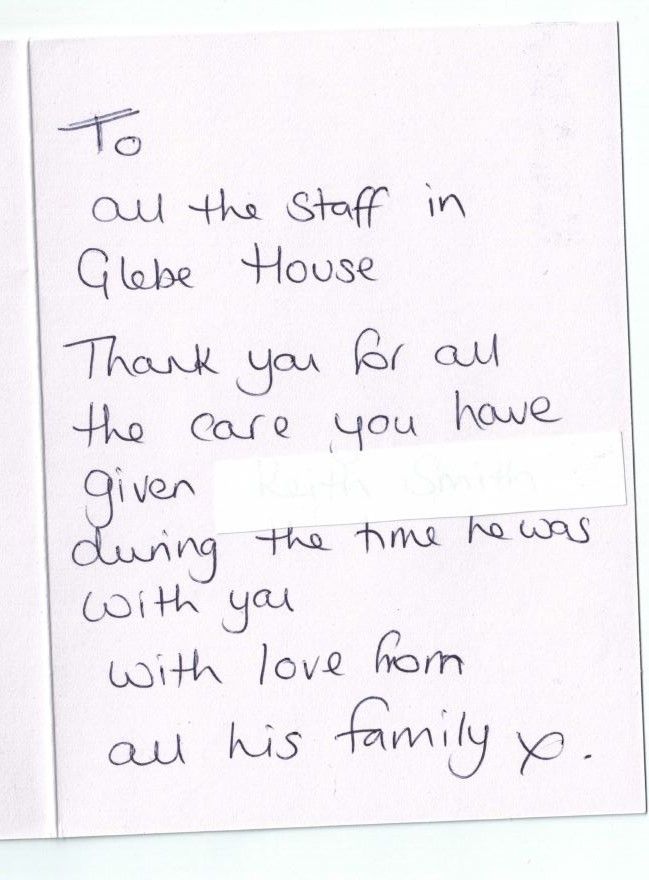 To
all the staff in
Glebe House
Thank you for all
the care you have
given
during the time he was
with you
with love from
all his family x.